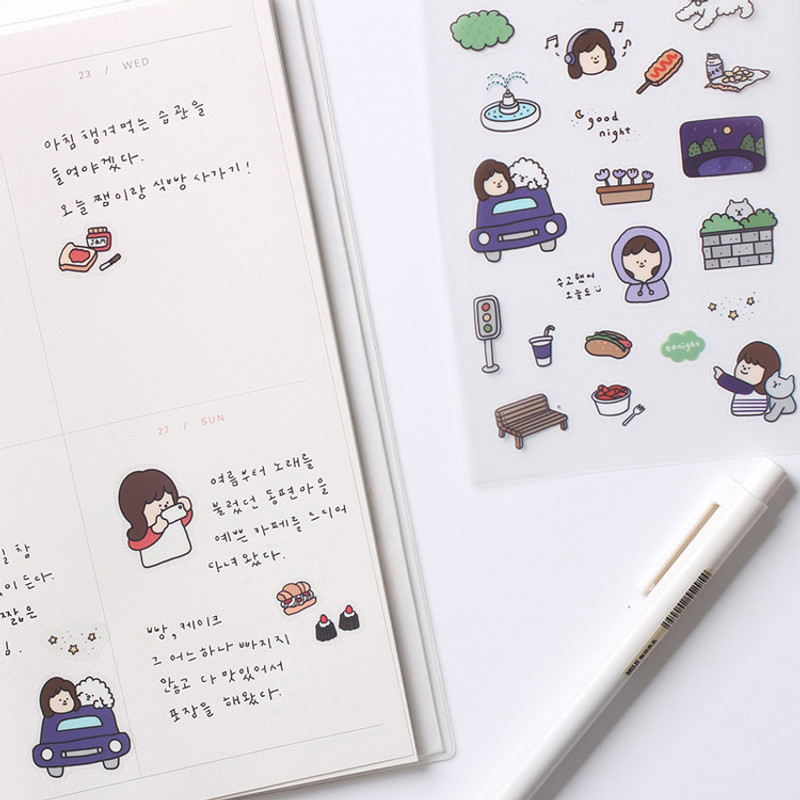 23 / WED
아침 챙겨먹는 습관을
들여야겠다.
오늘 쨈이랑 식빵 사가기!
JAM
27 / SUN
여름부터 노래를
불렀던 동편마을
예쁜 카페를 드디어
다녀왔다.
빵, 케이크
그 어느하나 빠지지
않고 다 맛있어서
포장을 해왔다.
이 든다.
짧은
good
night
수고했어
오늘도
tonight